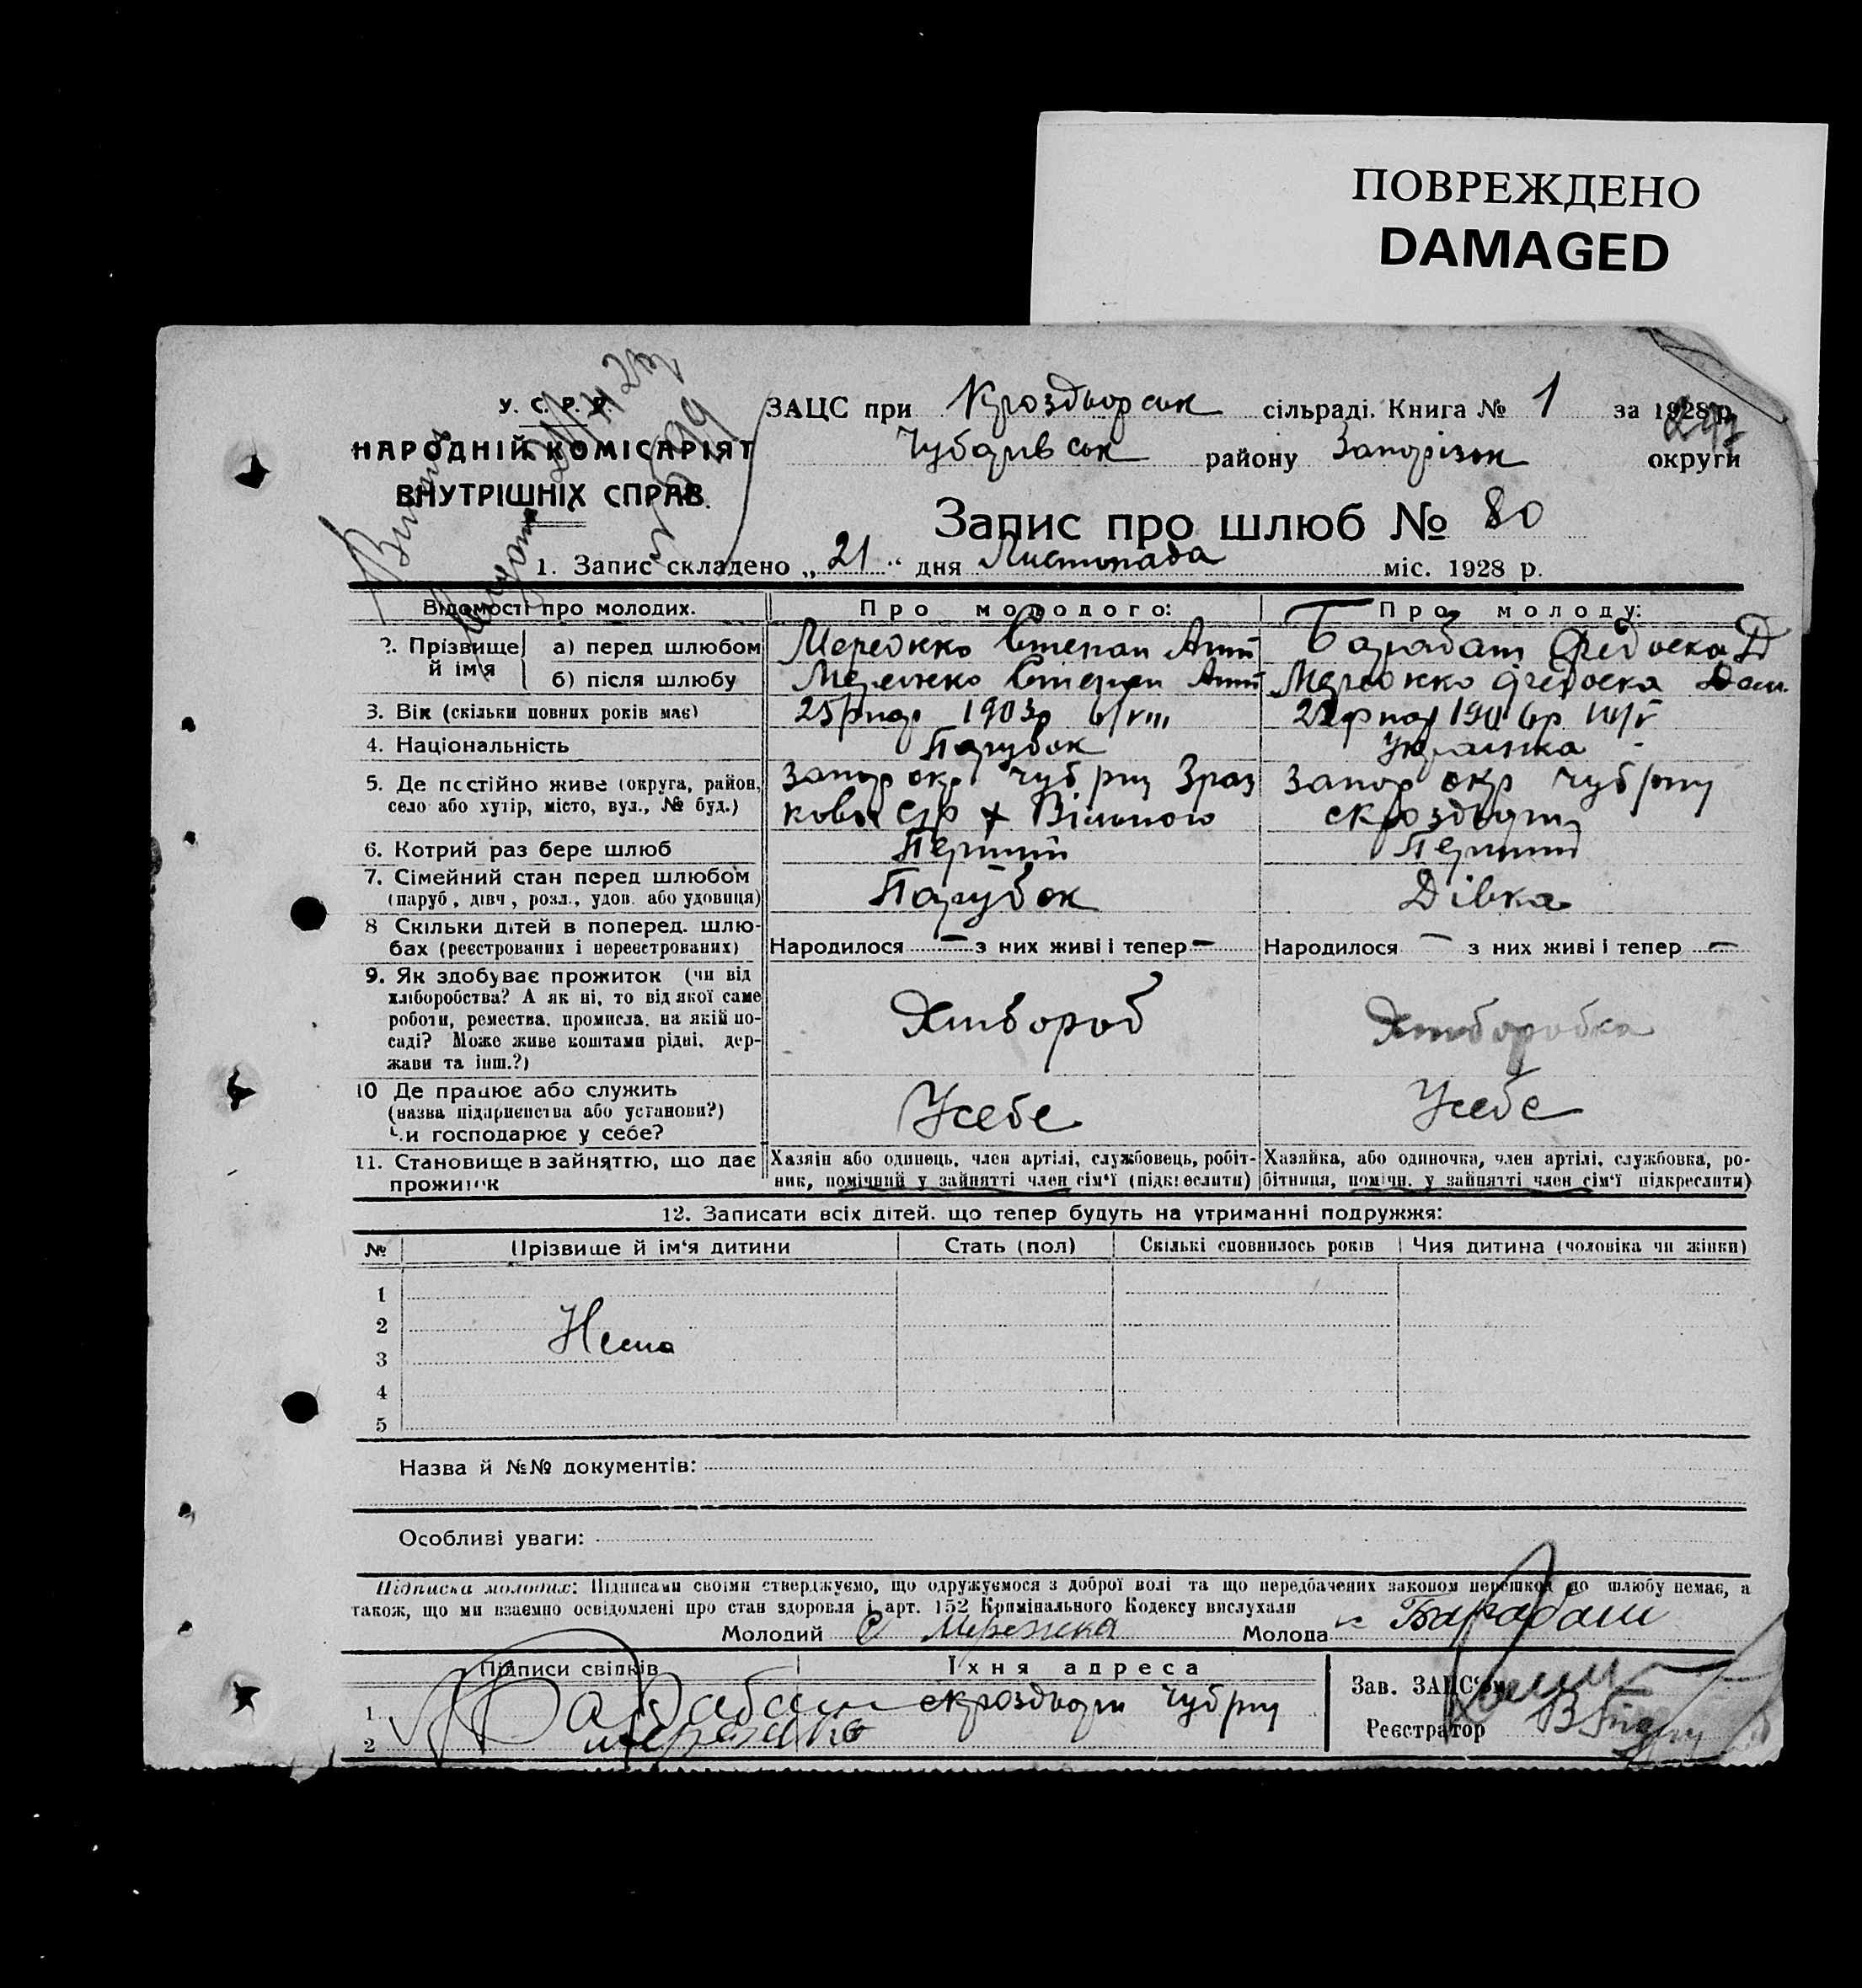 ПОВРЕЖДЕНО
DAMAGED
У. С. Р. Р.
НАРОДНІЙ КОМІСАРІЯТ
ВНУТРІШНІХ СПРАВ.
ЗАЦС при сільраді. Книга № 1 за 1928 р.
Чубарівськ району Запорізьк округи
Запис про шлюб № 80
1. Запис складено „ 21 " дня Листопада міс. 1928 р.
Відомості про молодих. Про молодого: Про молоду:
2. Прізвище й ім'я
а) перед шлюбом Степан Барабаш Федоска Д
б) після шлюбу Степан Федоска
3. Вік (скільки повних років має) 25 1903р 22
4. Національність Парубок Українка
5. Де постійно живе (округа, район, Запор окр Чуб Зраз Запор окр Чуб
село або хутір, місто, вул., № буд.) Вільного
6. Котрий раз бере шлюб Перший Перший
7. Сімейний стан перед шлюбом Парубок Дівка
(паруб., дівч., розл., удов. або удовиця)
8 Скільки дітей в поперед. шлю-
бах (реєстрованих і нереєстрованих) Народилося — з них живі і тепер — Народилося — з них живі і тепер —
9. Як здобуває прожиток (чи від
хліборобства? А як ні, то від якої саме
роботи, ремества, промисла, на якій по-
саді? Може живе коштами рідні, дер-
жави та інш.?) Хлібороб Хліборобка
10 Де працює або служить
(назва підприємства або установи?)
Чи господарює у себе? У себе У себе
11. Становище в зайняттю, що дає Хазяїн або одинець, член артілі, службовець, робіт- Хазяйка, або одиночка, член артілі, службовка, ро-
прожиток ник, помічний у зайнятті член сім'ї (підкреслити) бітниця, помічн. у зайнятті член сім'ї підкреслити)
12. Записати всіх дітей, що тепер будуть на утриманні подружжя:
№ Прізвище й ім'я дитини Стать (пол) Скількі сповнилось років Чия дитина (чоловіка чи жінки)
1
2
Нема
3
4
5
Назва й №№ документів:
Особливі уваги:
Підписка молодих: Підписами своїми стверджуємо, що одружуємося з доброї волі та що передбачених законом перешкод до шлюбу немає, а
також, що ми взаємно освідомлені про стан здоровля і арт. 152 Кримінального Кодексу вислухали
Молодий Молода Барабаш
Підписи свідків Їхня адреса
Зав. ЗАЦС'ом
1 Барабаш
Реєстратор
2